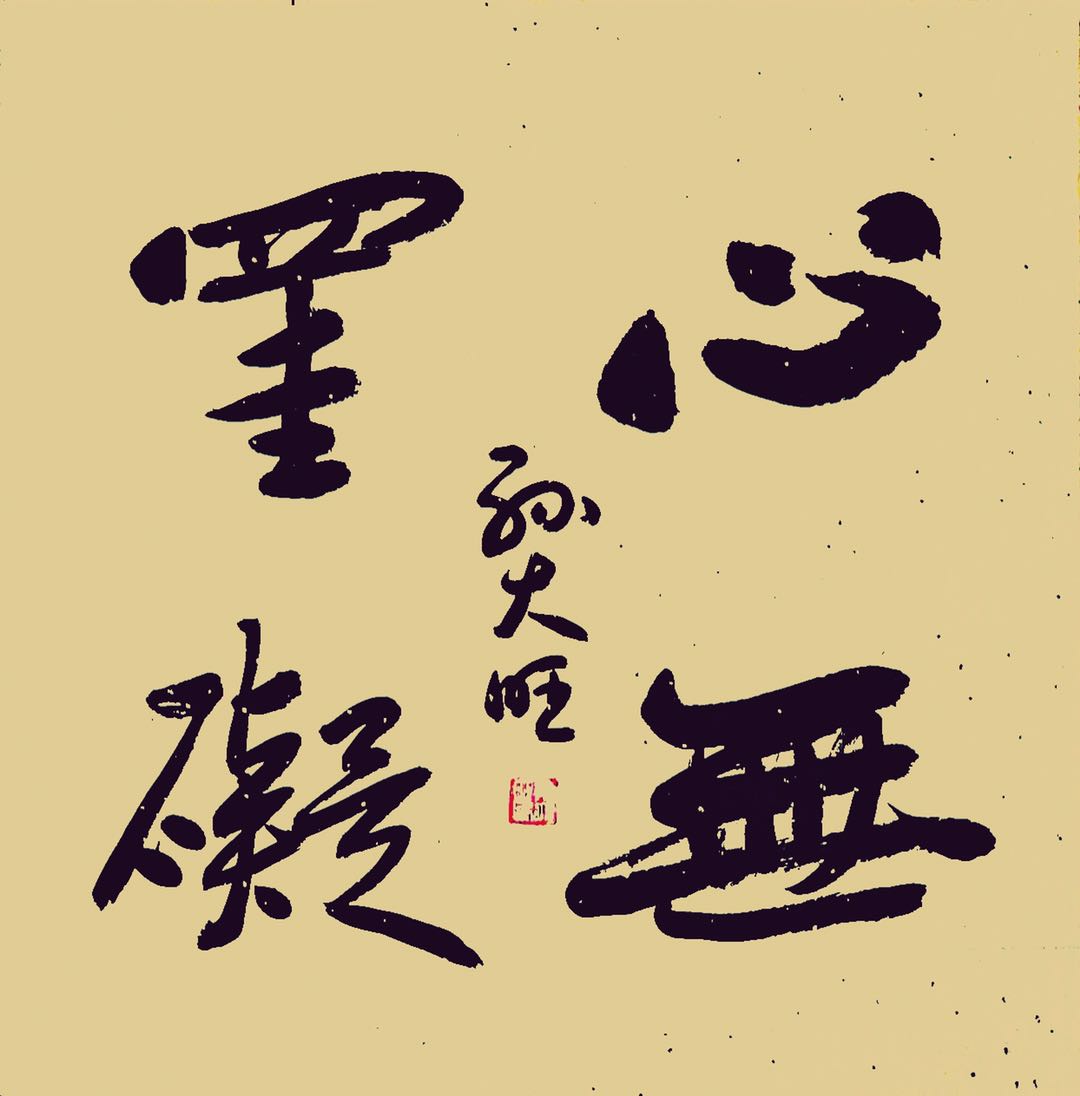 心無
罣礙
孫大旺